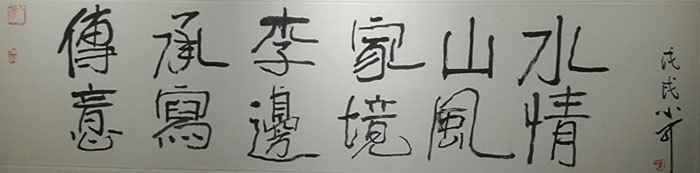 傳承李家山水
意寫邊境風情
戊戌